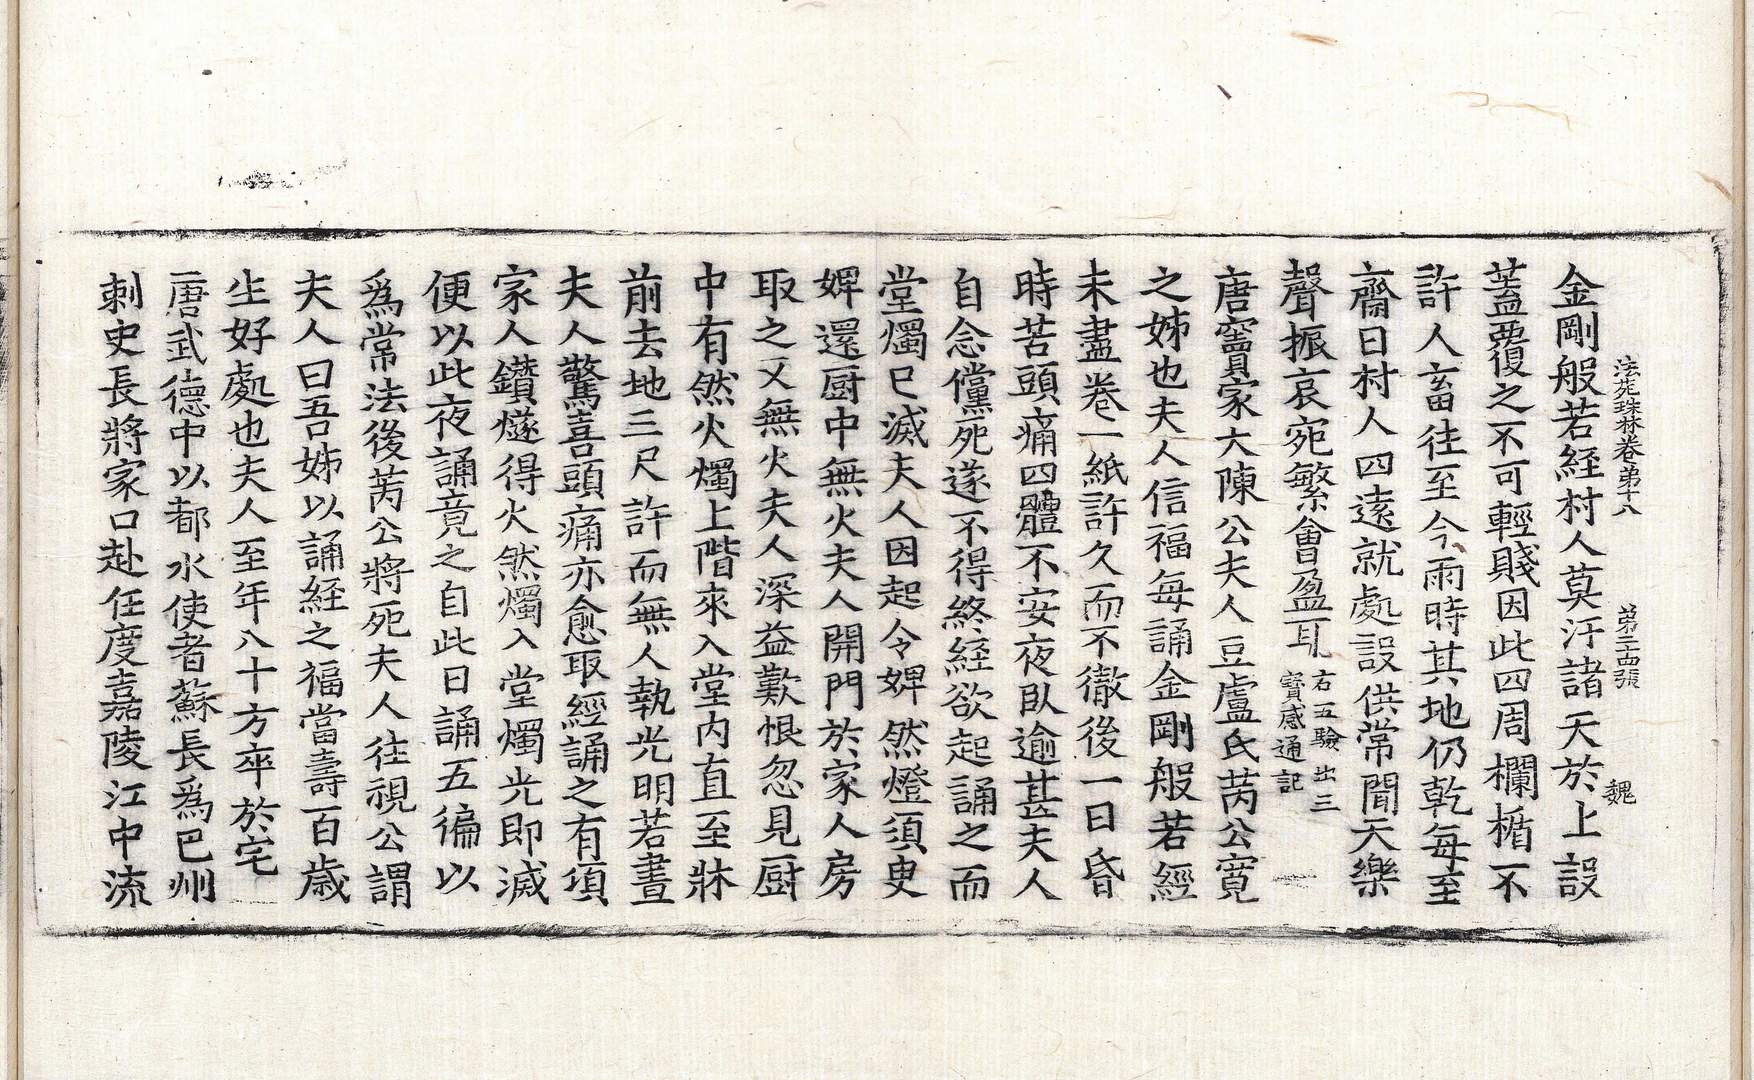 法苑珠林卷第十八　第三十四張　魏
金剛般若經村人莫汙諸天於上設
蓋覆之不可輕賤因此四周欄楯不
許人畜往至今雨時其地仍乾每至
齋日村人四遠就處設供常聞天樂
聲振哀宛繁會盈耳右五驗出三寶感通記
唐竇家大陳公夫人豆盧氏芮公寬
之姊也夫人信福每誦金剛般若經
未盡卷一紙許久而不徹後一日昏
時苦頭痛四體不安夜臥逾甚夫人
自念儻死遂不得終經欲起誦之而
堂燭已滅夫人因起令婢然燈須臾
婢還厨中無火夫人開門於家人房
取之又無火夫人深益歎恨忽見厨
中有然火燭上階來入堂內直至牀
前去地三尺許而無人執光明若晝
夫人驚喜頭痛亦愈取經誦之有頃
家人鑽燧得火然燭入堂燭光即滅
便以此夜誦竟之自此日誦五徧以
爲常法後芮公將死夫人往視公謂
夫人曰吾姊以誦經之福當壽百歲
生好處也夫人至年八十方卒於宅
唐武德中以都水使者蘇長爲巴州
刺史長將家口赴任度嘉陵江中流